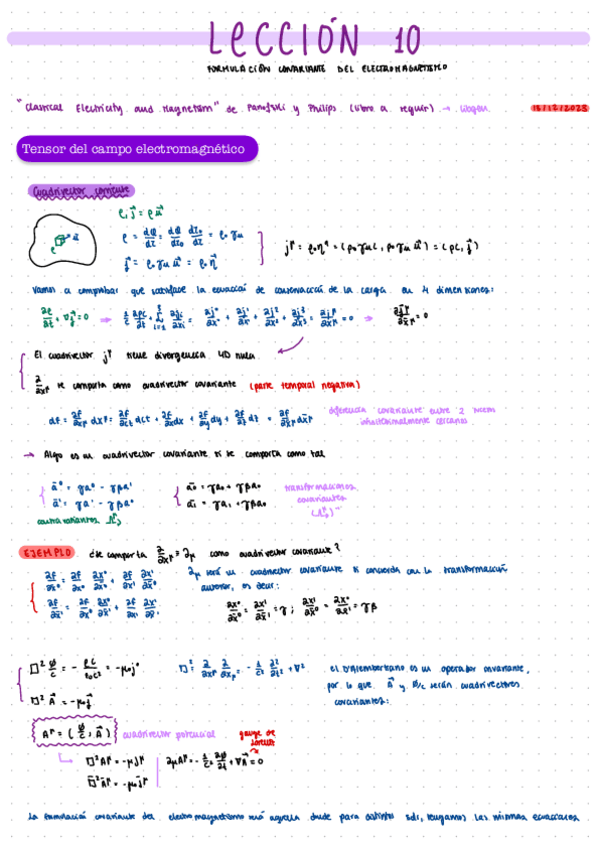 LECCIÓN 10
FORMULACIÓN COVARIANTE DEL ELECTROMAGNETISMO
"Classical Electricity and Magnetism" de Panofski y Philips (libro a seguir) →
15/12/2023
Tensor del campo electromagnético
Cuadrivector corriente
ρ, j⃗ = ρu⃗
ρ = dQ/dτ = dQ/dτ₀ dτ₀/dτ = ρ₀γu
j⃗ = ρ₀γu u⃗ = ρ₀η⃗
j^μ = ρ₀η^μ = (ρ₀γuc, ρ₀γu u⃗) = (ρc, j⃗)
Vamos a comprobar que satisface la ecuación de conservación de la carga en 4 dimensiones:
∂ρ/∂t + ∇j⃗ = 0 → 1/c ∂ρc/∂t + Σ ∂ji/∂xi = ∂j⁰/∂x⁰ + ∂j¹/∂x¹ + ∂j²/∂x² + ∂j³/∂x³ = ∂j^μ/∂x^μ = 0 → ∂j̄^μ/∂x̄^μ = 0
El cuadrivector j^μ tiene divergencia 4D nula.
∂/∂x^μ se comporta como cuadrivector covariante (parte temporal negativa)
df = ∂f/∂x^μ dx^μ = ∂f/∂ct dct + ∂f/∂x dx + ∂f/∂y dy + ∂f/∂z dz = ∂f/∂x̄^μ dx̄^μ
diferencia covariante entre 2 sucesos
infinitesimalmente cercanos
→ Algo es un cuadrivector covariante si se comporta como tal
ā⁰ = γa⁰ - γβa¹
ā¹ = γa¹ - γβa⁰
contravariantes
ā₀ = γa₀ + γβa₁
ā₁ = γa₁ + γβa₀
transformaciones
covariantes
EJEMPLO ¿Se comporta ∂/∂x^μ = ∂μ como cuadrivector covariante?
∂f/∂x̄⁰ = ∂f/∂x⁰ ∂x⁰/∂x̄⁰ + ∂f/∂x¹ ∂x¹/∂x̄⁰
∂f/∂x̄¹ = ∂f/∂x⁰ ∂x⁰/∂x̄¹ + ∂f/∂x¹ ∂x¹/∂x̄¹
∂μ será un cuadrivector covariante si concuerda con la transformación
anterior, es decir:
∂x⁰/∂x̄⁰ = ∂x¹/∂x̄¹ = γ ; ∂x¹/∂x̄⁰ = ∂x⁰/∂x̄¹ = γβ
□² ϕ/c = - ρc/ε₀c² = -μ₀j⁰
□² A⃗ = -μ₀j⃗
□² = ∂/∂x^μ ∂/∂xμ = - 1/c² ∂²/∂t² + ∇²
el D'Alembertiano es un operador invariante,
por lo que A⃗ y ϕ/c serán cuadrivectores
covariantes:
A^μ = (ϕ/c, A⃗) cuadrivector potencial
gauge de
Lorentz
□²A^μ = -μ₀j^μ
□̄²Ā^μ = -μ₀j̄^μ
∂μA^μ = - 1/c² ∂ϕ/∂t + ∇A⃗ = 0
La formulación covariante del electromagnetismo será aquella donde para distintos sdr, tengamos las mismas ecuaciones